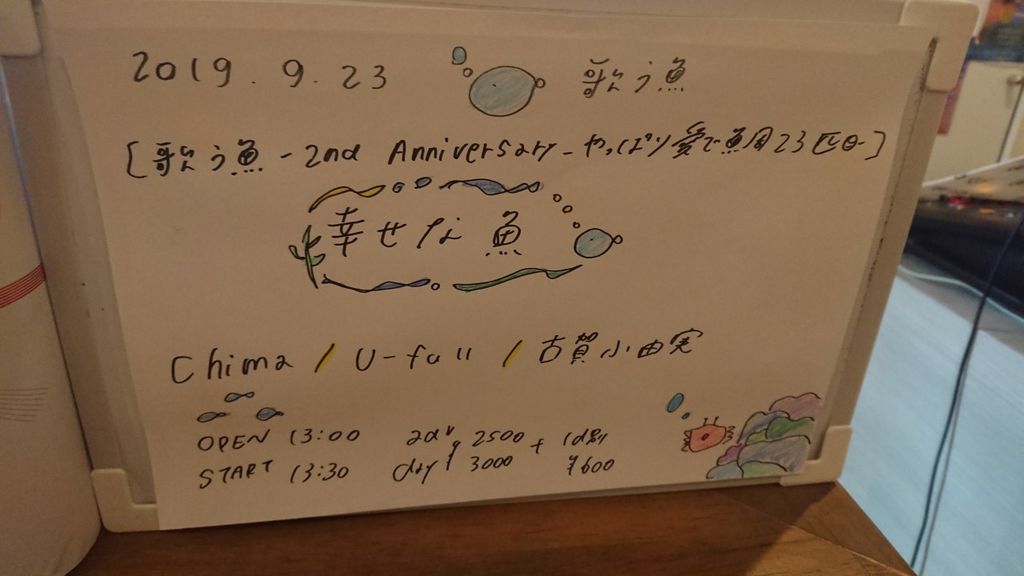 2019.9.23 歌う魚
[歌う魚 -2nd Anniversary- やっぱり愛で魚周23匹目]
幸せな魚
Chima / U-full / 古賀小由実
OPEN 13:00 adv ¥2500 + 1d別
START 13:30 day ¥3000 ¥600